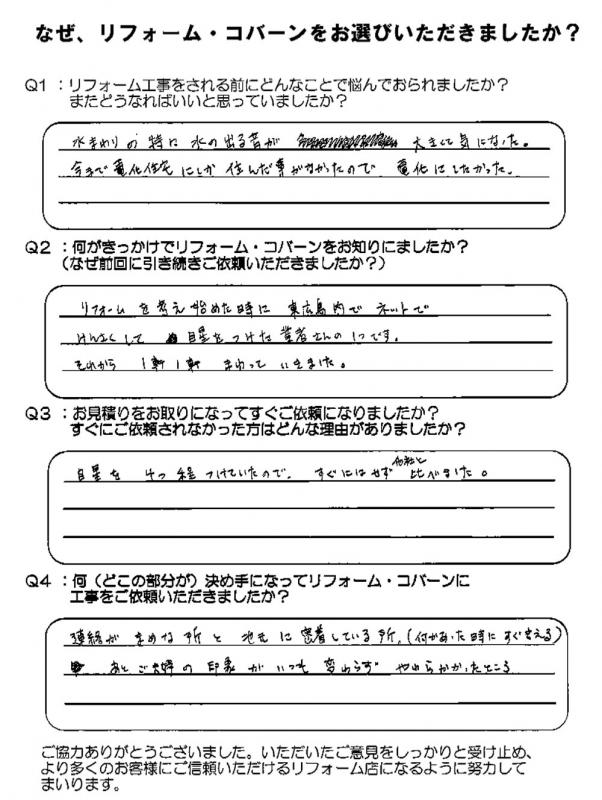 なぜ、リフォーム・コバーンをお選びいただきましたか？
Q1 ：リフォーム工事をされる前にどんなことで悩んでおられましたか？
またどうなればいいと思っていましたか？
水まわりの特に水の出る音が 大きくて気になった。
今まで電化住宅にしか住んだ事がなかったので 電化にしたかった。
Q2 ：何がきっかけでリフォーム・コバーンをお知りにましたか？
（なぜ前回に引き続きご依頼いただきましたか？）
リフォームを考え始めた時に 東広島内でネットで
けんさくして 目星をつけた業者さんの1つです。
それから 1軒1軒 まわっていきました。
Q3 ：お見積りをお取りになってすぐご依頼になりましたか？
すぐにご依頼されなかった方はどんな理由がありましたか？
目星を つけていたので、すぐにはせず 他社と比べました。
Q4 ：何（どこの部分が）決め手になってリフォーム・コバーンに
工事をご依頼いただきましたか？
連絡がまめな所と 地元に密着している所。（何かあった時にすぐ言える）
あとご夫婦の印象がいつも変わらず やわらかかったところ
ご協力ありがとうございました。いただいたご意見をしっかりと受け止め、
より多くのお客様にご信頼いただけるリフォーム店になるように努力して
まいります。